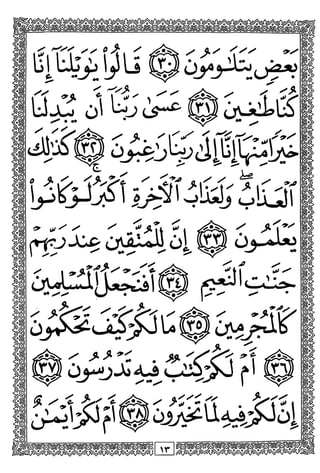 بَعۡضٖ يَتَلَٰوَمُونَ ٣٠ قَالُواْ يَٰوَيۡلَنَآ إِنَّا
كُنَّا طَٰغِينَ ٣١ عَسَىٰ رَبُّنَآ أَن يُبۡدِلَنَا
خَيۡرٗا مِّنۡهَآ إِنَّآ إِلَىٰ رَبِّنَا رَٰغِبُونَ ٣٢ كَذَٰلِكَ
ٱلۡعَذَابُۖ وَلَعَذَابُ ٱلۡأٓخِرَةِ أَكۡبَرُۚ لَوۡ كَانُواْ
يَعۡلَمُونَ ٣٣ إِنَّ لِلۡمُتَّقِينَ عِندَ رَبِّهِمۡ
جَنَّٰتِ ٱلنَّعِيمِ ٣٤ أَفَنَجۡعَلُ ٱلۡمُسۡلِمِينَ
كَٱلۡمُجۡرِمِينَ ٣٥ مَا لَكُمۡ كَيۡفَ تَحۡكُمُونَ
٣٦ أَمۡ لَكُمۡ كِتَٰبٞ فِيهِ تَدۡرُسُونَ ٣٧
إِنَّ لَكُمۡ فِيهِ لَمَا تَخَيَّرُونَ ٣٨ أَمۡ لَكُمۡ أَيۡمَٰنٌ
١٣